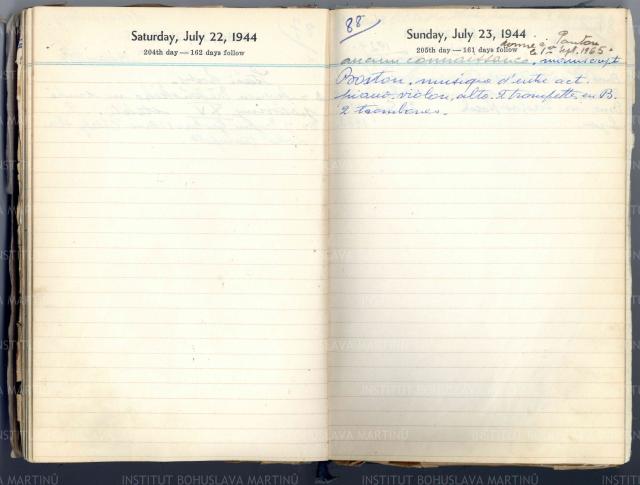 Saturday, July 22, 1944
204th day — 162 days follow
88
Sunday, July 23, 1944
205th day — 161 days follow
donné à Panton
le 1er Sept. 1965.
aucune connaissance, manuscript
Boston, musique d'entre act
piano, violon, alto. 2 trompettes en B.
2 trombones.
INSTITUT BOHUSLAVA MARTINŮ